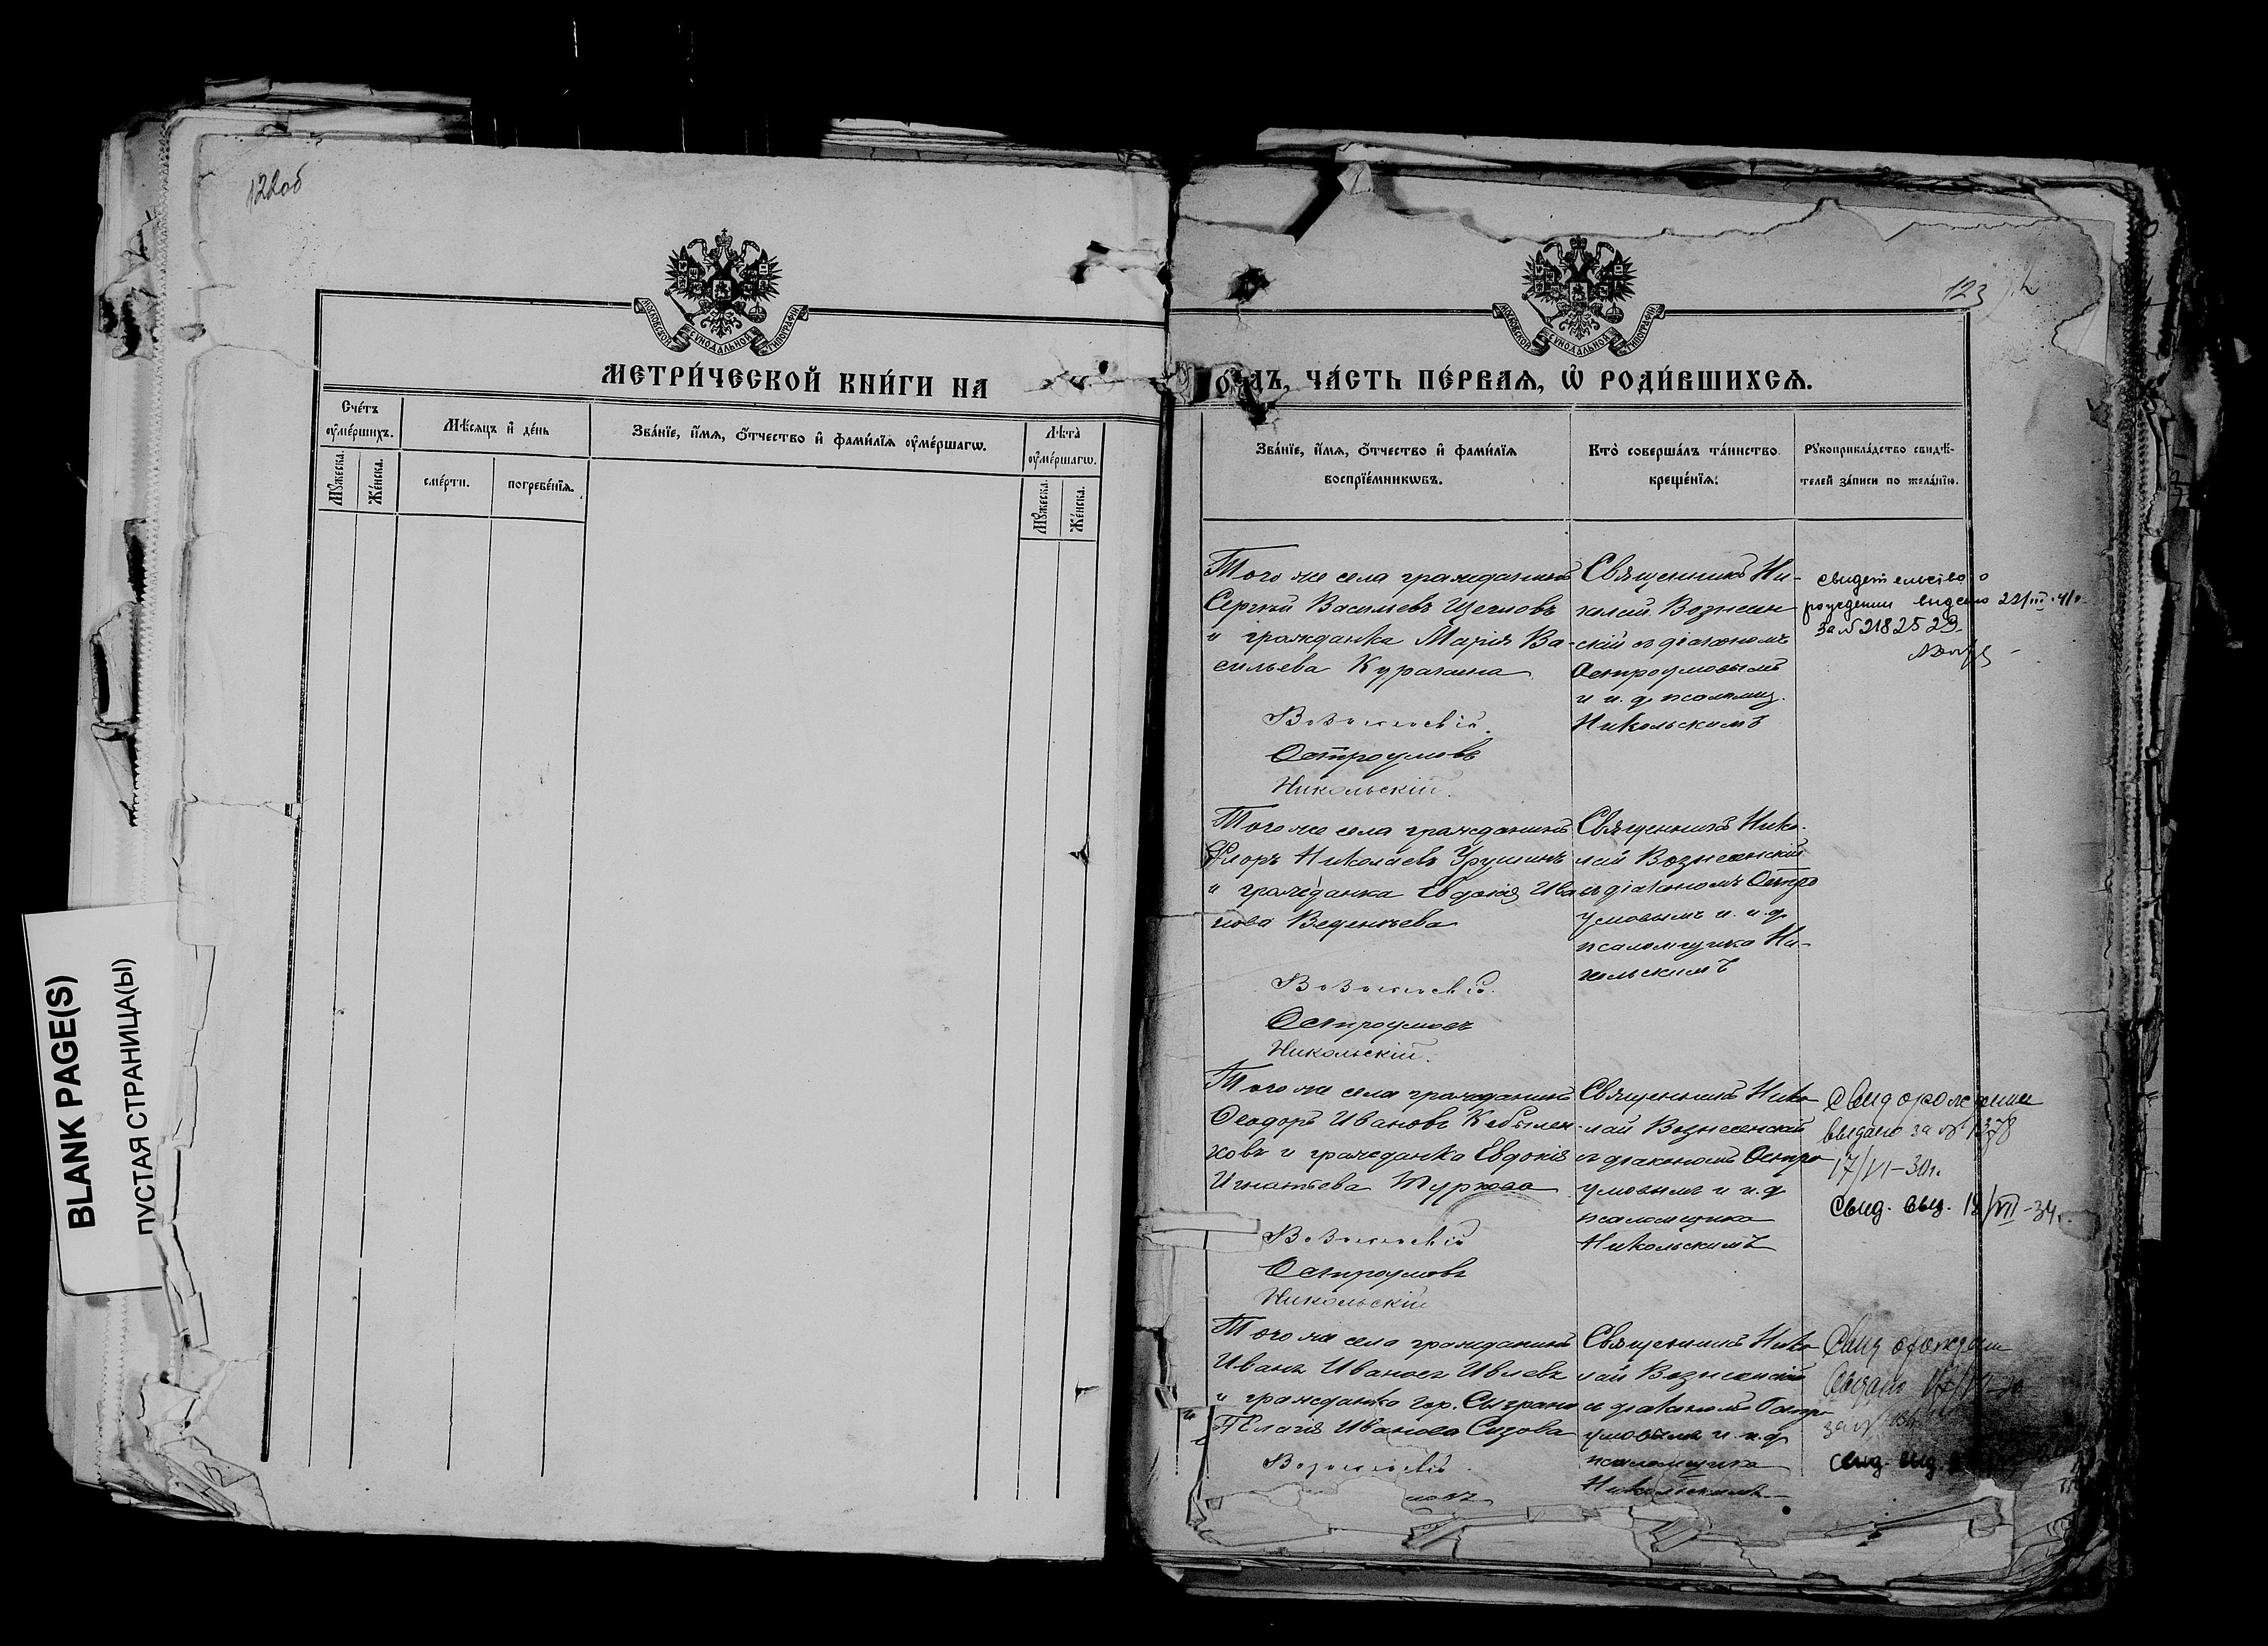 122об
МОСКОВСКОЙ СУНОДАЛЬНОЙ ТИПОГРАФІИ
МЕТРИ́ЧЕСКОЙ КНИ́ГИ НА
Счéтъ ᲂу҆мéршихъ.
Мꙋ́жеска.
Жéнска.
Мѣ́сяцъ и҆ дéнь
смéрти.
погребéнїѧ.
Звáнїе, и҆́мѧ, ѻ҆́тчество и҆ фамѝлїѧ ᲂу҆мéршагѡ.
Лѣ̑та ᲂу҆мéршагѡ.
Мꙋ́жеска.
Жéнска.
BLANK PAGE(S)
ПУСТАЯ СТРАНИЦА(Ы)
123
МОСКОВСКОЙ СУНОДАЛЬНОЙ ТИПОГРАФІИ
ГО́ДЪ, ЧА́СТЬ ПЕ́РВАѦ, Ѡ҆ РОДИ́ВШИХСѦ.
Звáнїе, и҆́мѧ, ѻ҆́тчество и҆ фамѝлїѧ
воспрїéмникѡвъ.
Ктò совершáлъ тáинство
крещéнїѧ.
Рꙋкоприклáдство свидѣ́-
телей зáписи по желáнїю.
Того же села гражданинъ
Сергѣй Васильевъ Щегловъ
и гражданка Марія Ва-
сильева Курагина
Вознесенскій.
Остроумовъ
Никольскій.
Священникъ Ни-
колай Вознесен
скій съ діакономъ
Остроумовымъ
и и. д. псаломщ.
Никольскимъ
свидетельство о
рождении выдано 22/III-41г.
за №2182523
Того же села гражданинъ
Флоръ Николаевъ Урушинъ
и гражданка Евдокія Ива
нова Веденѣева
Вознесенскій.
Остроумовъ
Никольскій.
Священникъ Нико-
лай Вознесенскій
съ діакономъ Остро
умовымъ и. и. д.
псаломщика Ни-
кольскимъ
Того же села гражданинъ
Феодоръ Ивановъ Кобылен
ковъ и гражданка Евдокія
Игнатьева Туркова
Вознесенскій
Остроумовъ
Никольскій
Священникъ Нико
лай Вознесенскій
съ діакономъ Остро
умовымъ и и. д
псаломщика
Никольскимъ
Свид о рождении
выдано за № 1378
17/VI-30г.
Свид. выд. 12/VII-34г.
Того же села гражданинъ
Иванъ Ивановъ Ивлевъ
и гражданка гор. Сызрани
Пелагія Иванова Сизова
Вознесенскій
мовъ
Священникъ Нико
лай Вознесенскій
съ діакономъ Остро
умовымъ и и. д.
псаломщика
Никольскимъ
Свид о рождении
выдано
за №
свид. выд.